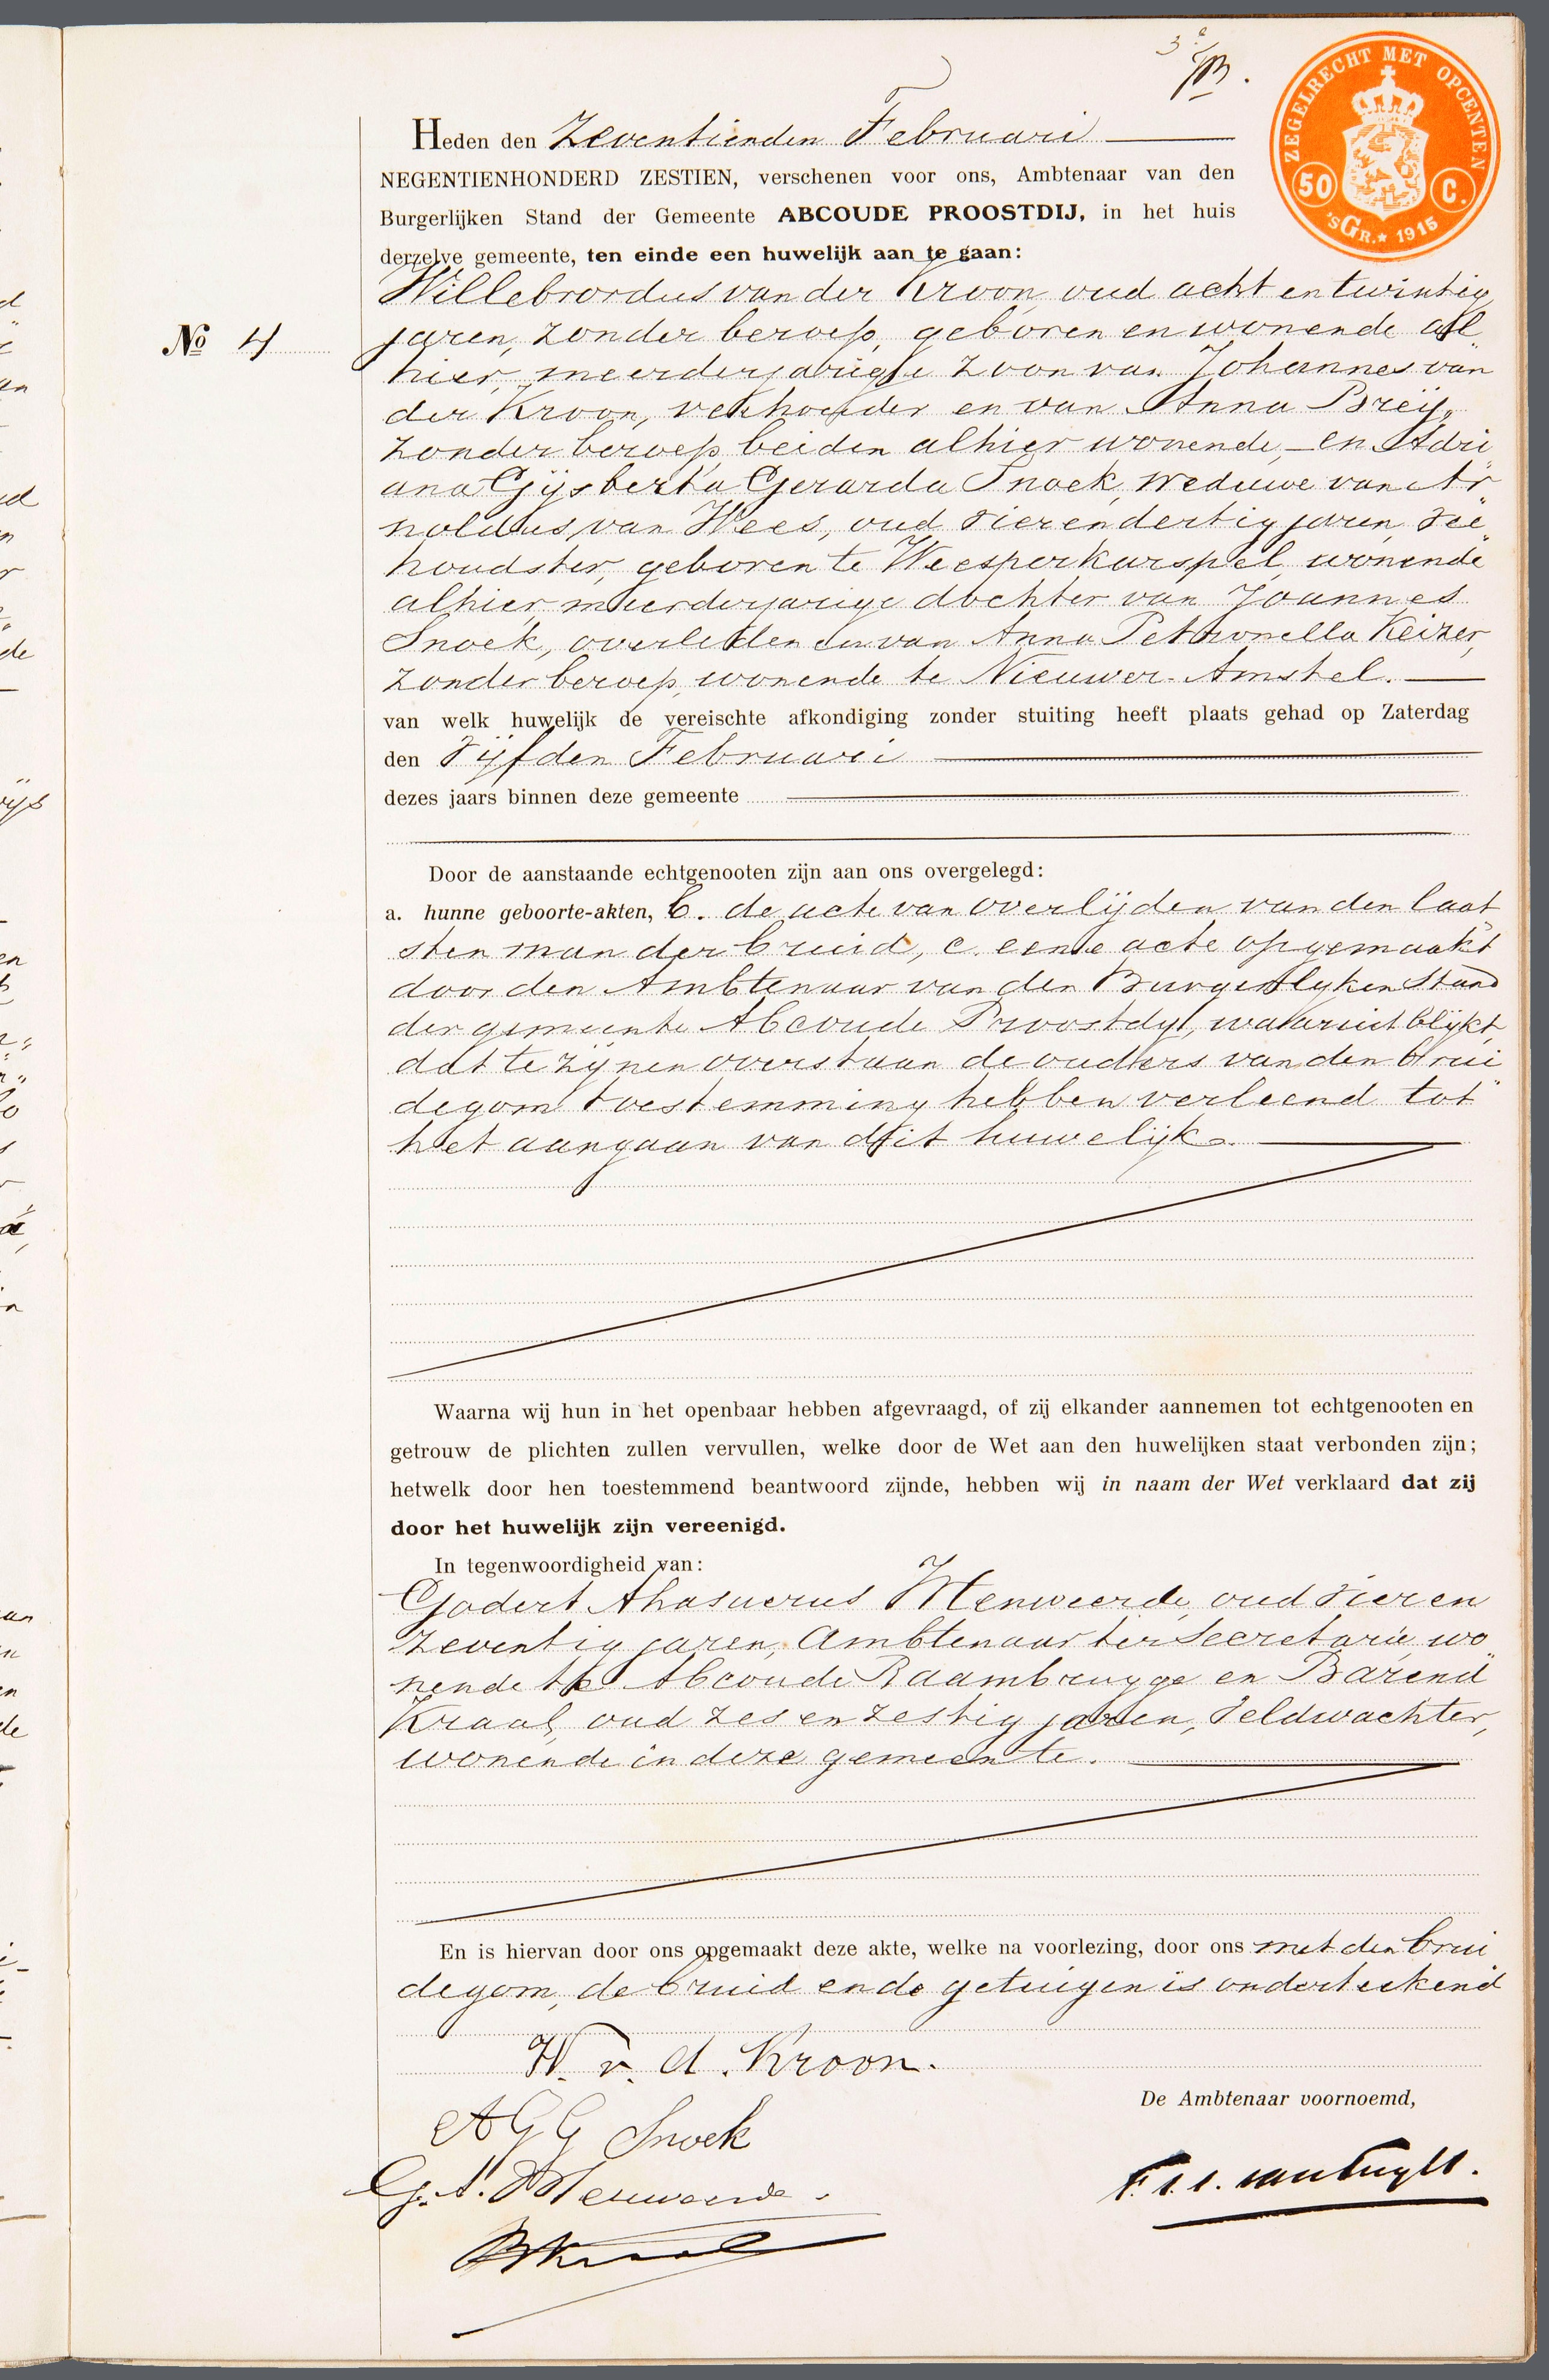 ZEGELRECHT MET OPCENTEN
50 C.
'sGR.★ 1915
Heden den Zeventienden Februari
NEGENTIENHONDERD ZESTIEN, verschenen voor ons, Ambtenaar van den
Burgerlijken Stand der Gemeente ABCOUDE PROOSTDIJ, in het huis
derzelve gemeente, ten einde een huwelijk aan te gaan:
Willebrordus van der Kroon, oud acht en twintig
No 4
jaren, zonder beroep, geboren en wonende al„
hier, meerderjarige zoon van Johannes van
der Kroon, veehouder en van Anna Breij„
zonder beroep, beiden alhier wonende, – en Adri„
ana Gijsberta Gerarda Snoek, weduwe van Ar„
noldus van Wees, oud vier en dertig jaren, vee„
houdster, geboren te Weesperkarspel, wonende
alhier, meerderjarige dochter van Joannes
Snoek, overleden en van Anna Petronella Keizer,
zonder beroep, wonende te Nieuwer-Amstel.
van welk huwelijk de vereischte afkondiging zonder stuiting heeft plaats gehad op Zaterdag
den Vijfden Februari
dezes jaars binnen deze gemeente
Door de aanstaande echtgenooten zijn aan ons overgelegd:
a. hunne geboorte-akten, b. de acte van overlijden van den laat„
sten man der bruid, c. eene acte opgemaakt
door den Ambtenaar van den Burgerlijken Stand
der gemeente Abcoude Proostdij, waaruit blijkt,
dat te zijnen overstaan de ouders van den brui„
degom toestemming hebben verleend tot
het aangaan van dit huwelijk.
Waarna wij hun in het openbaar hebben afgevraagd, of zij elkander aannemen tot echtgenooten en
getrouw de plichten zullen vervullen, welke door de Wet aan den huwelijken staat verbonden zijn;
hetwelk door hen toestemmend beantwoord zijnde, hebben wij in naam der Wet verklaard dat zij
door het huwelijk zijn vereenigd.
In tegenwoordigheid van:
Godert Ahasuerus Menweerde, oud vier en
zeventig jaren, Ambtenaar ter Secretarie, wo„
nende te Abcoude Baambrugge en Barend
Kraal, oud zes en zestig jaren, Veldwachter,
wonende in deze gemeente.
En is hiervan door ons opgemaakt deze akte, welke na voorlezing, door ons met den brui
degom, de bruid en de getuigen is onderteekend
W. v. d. Kroon.
De Ambtenaar voornoemd,
AGG Snoek
G. A. Menweerde.
BKraal